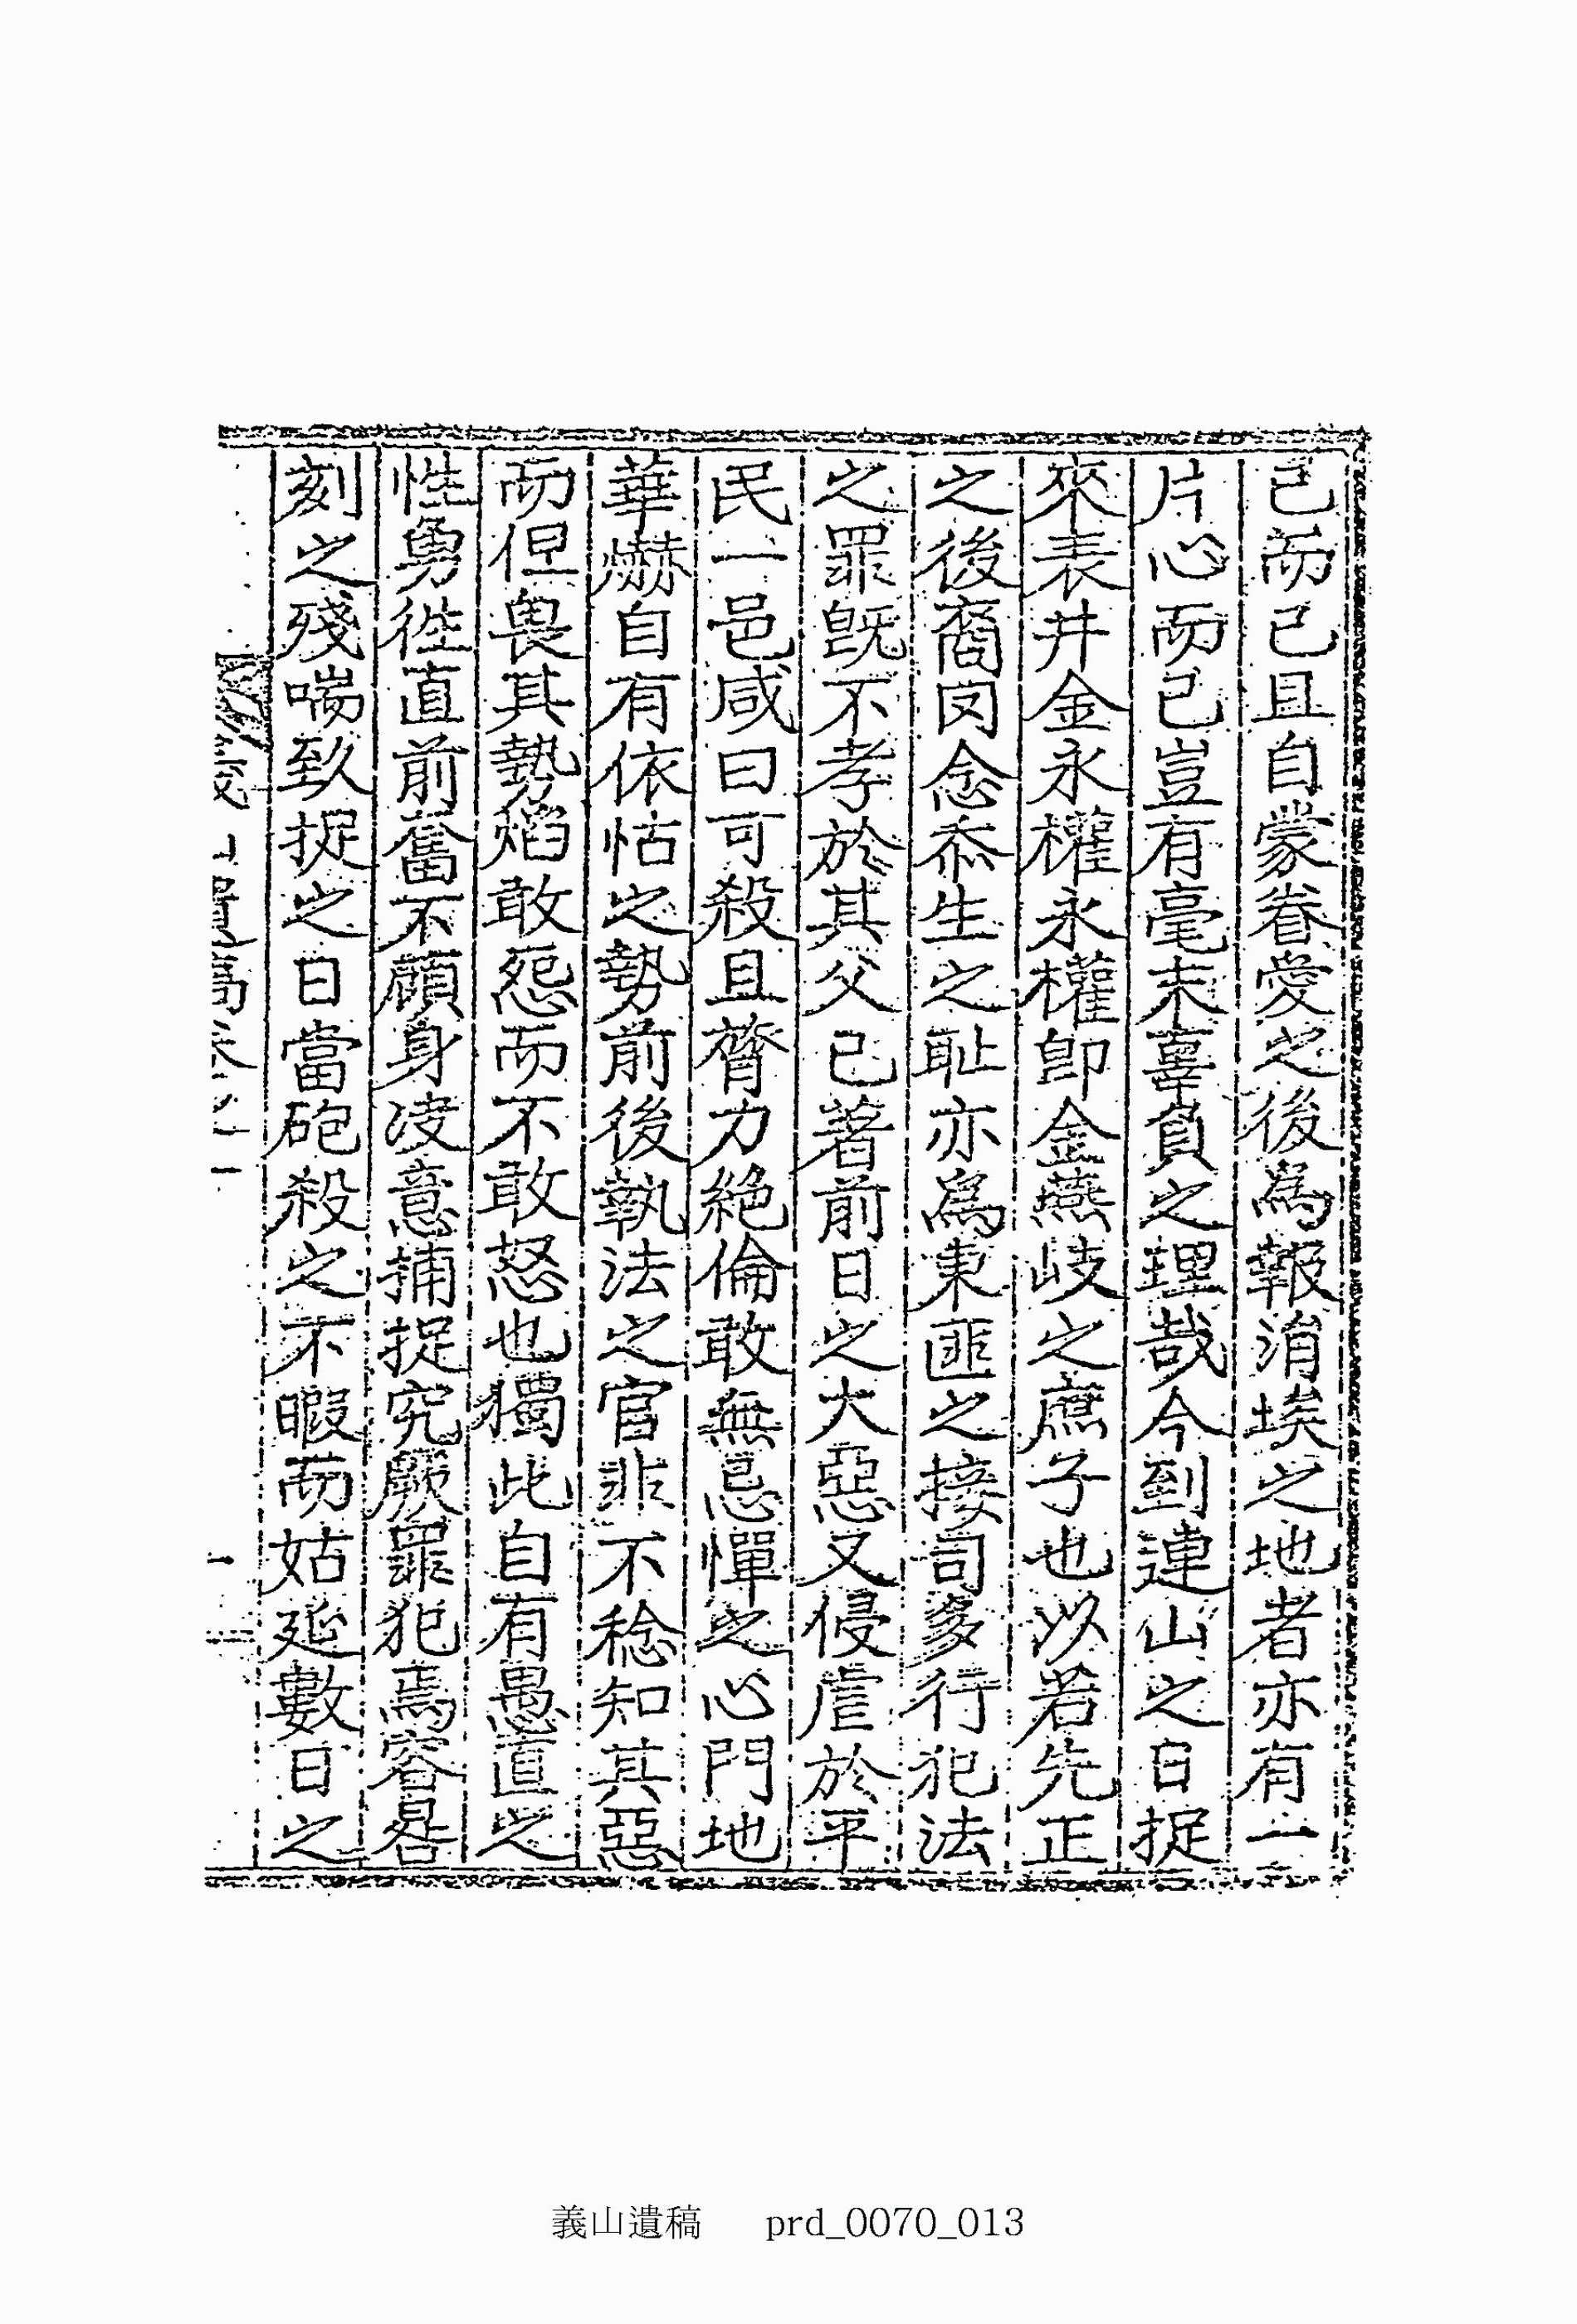 已而已且自蒙眷愛之後爲報涓埃之地者亦有一
片心而已豈有毫末辜負之理哉今到連山之日捉
來表井金永權永權卽金燕岐之庶子也以若先正
之後裔罔念忝生之恥亦爲東匪之接司多行犯法
之罪旣不孝於其父已著前日之大惡又侵虐於平
民一邑咸曰可殺且膂力絶倫敢無忌憚之心門地
華爀自有依怙之勢前後執法之官非不稔知其惡
而但畏其勢焰敢怨而不敢怒也獨此自有愚直之
性勇徃直前奮不顧身决意捕捉究厥罪犯焉容晷
刻之殘喘致捉之日當砲殺之不暇而姑延數日之
義山遺稿 prd_0070_013